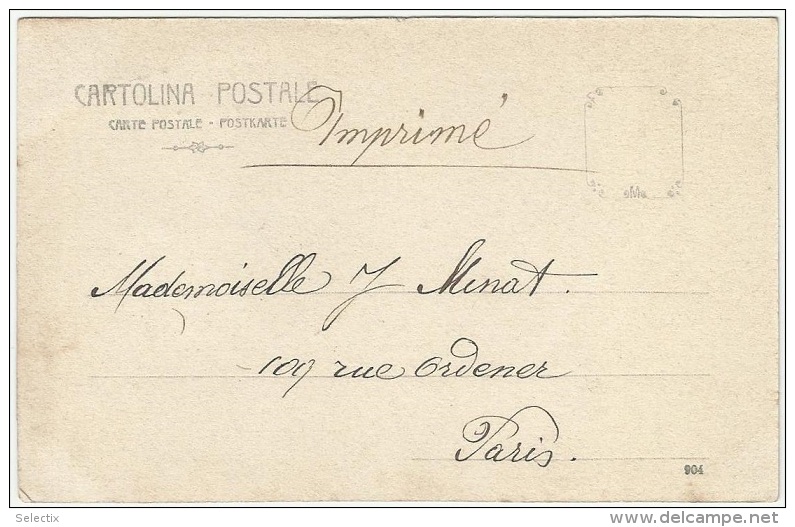 CARTOLINA POSTALE
CARTE POSTALE - POSTKARTE
Imprimé
Mademoiselle J Menat.
109 rue Ordener
Paris.
904
Selectix
delcampe.net